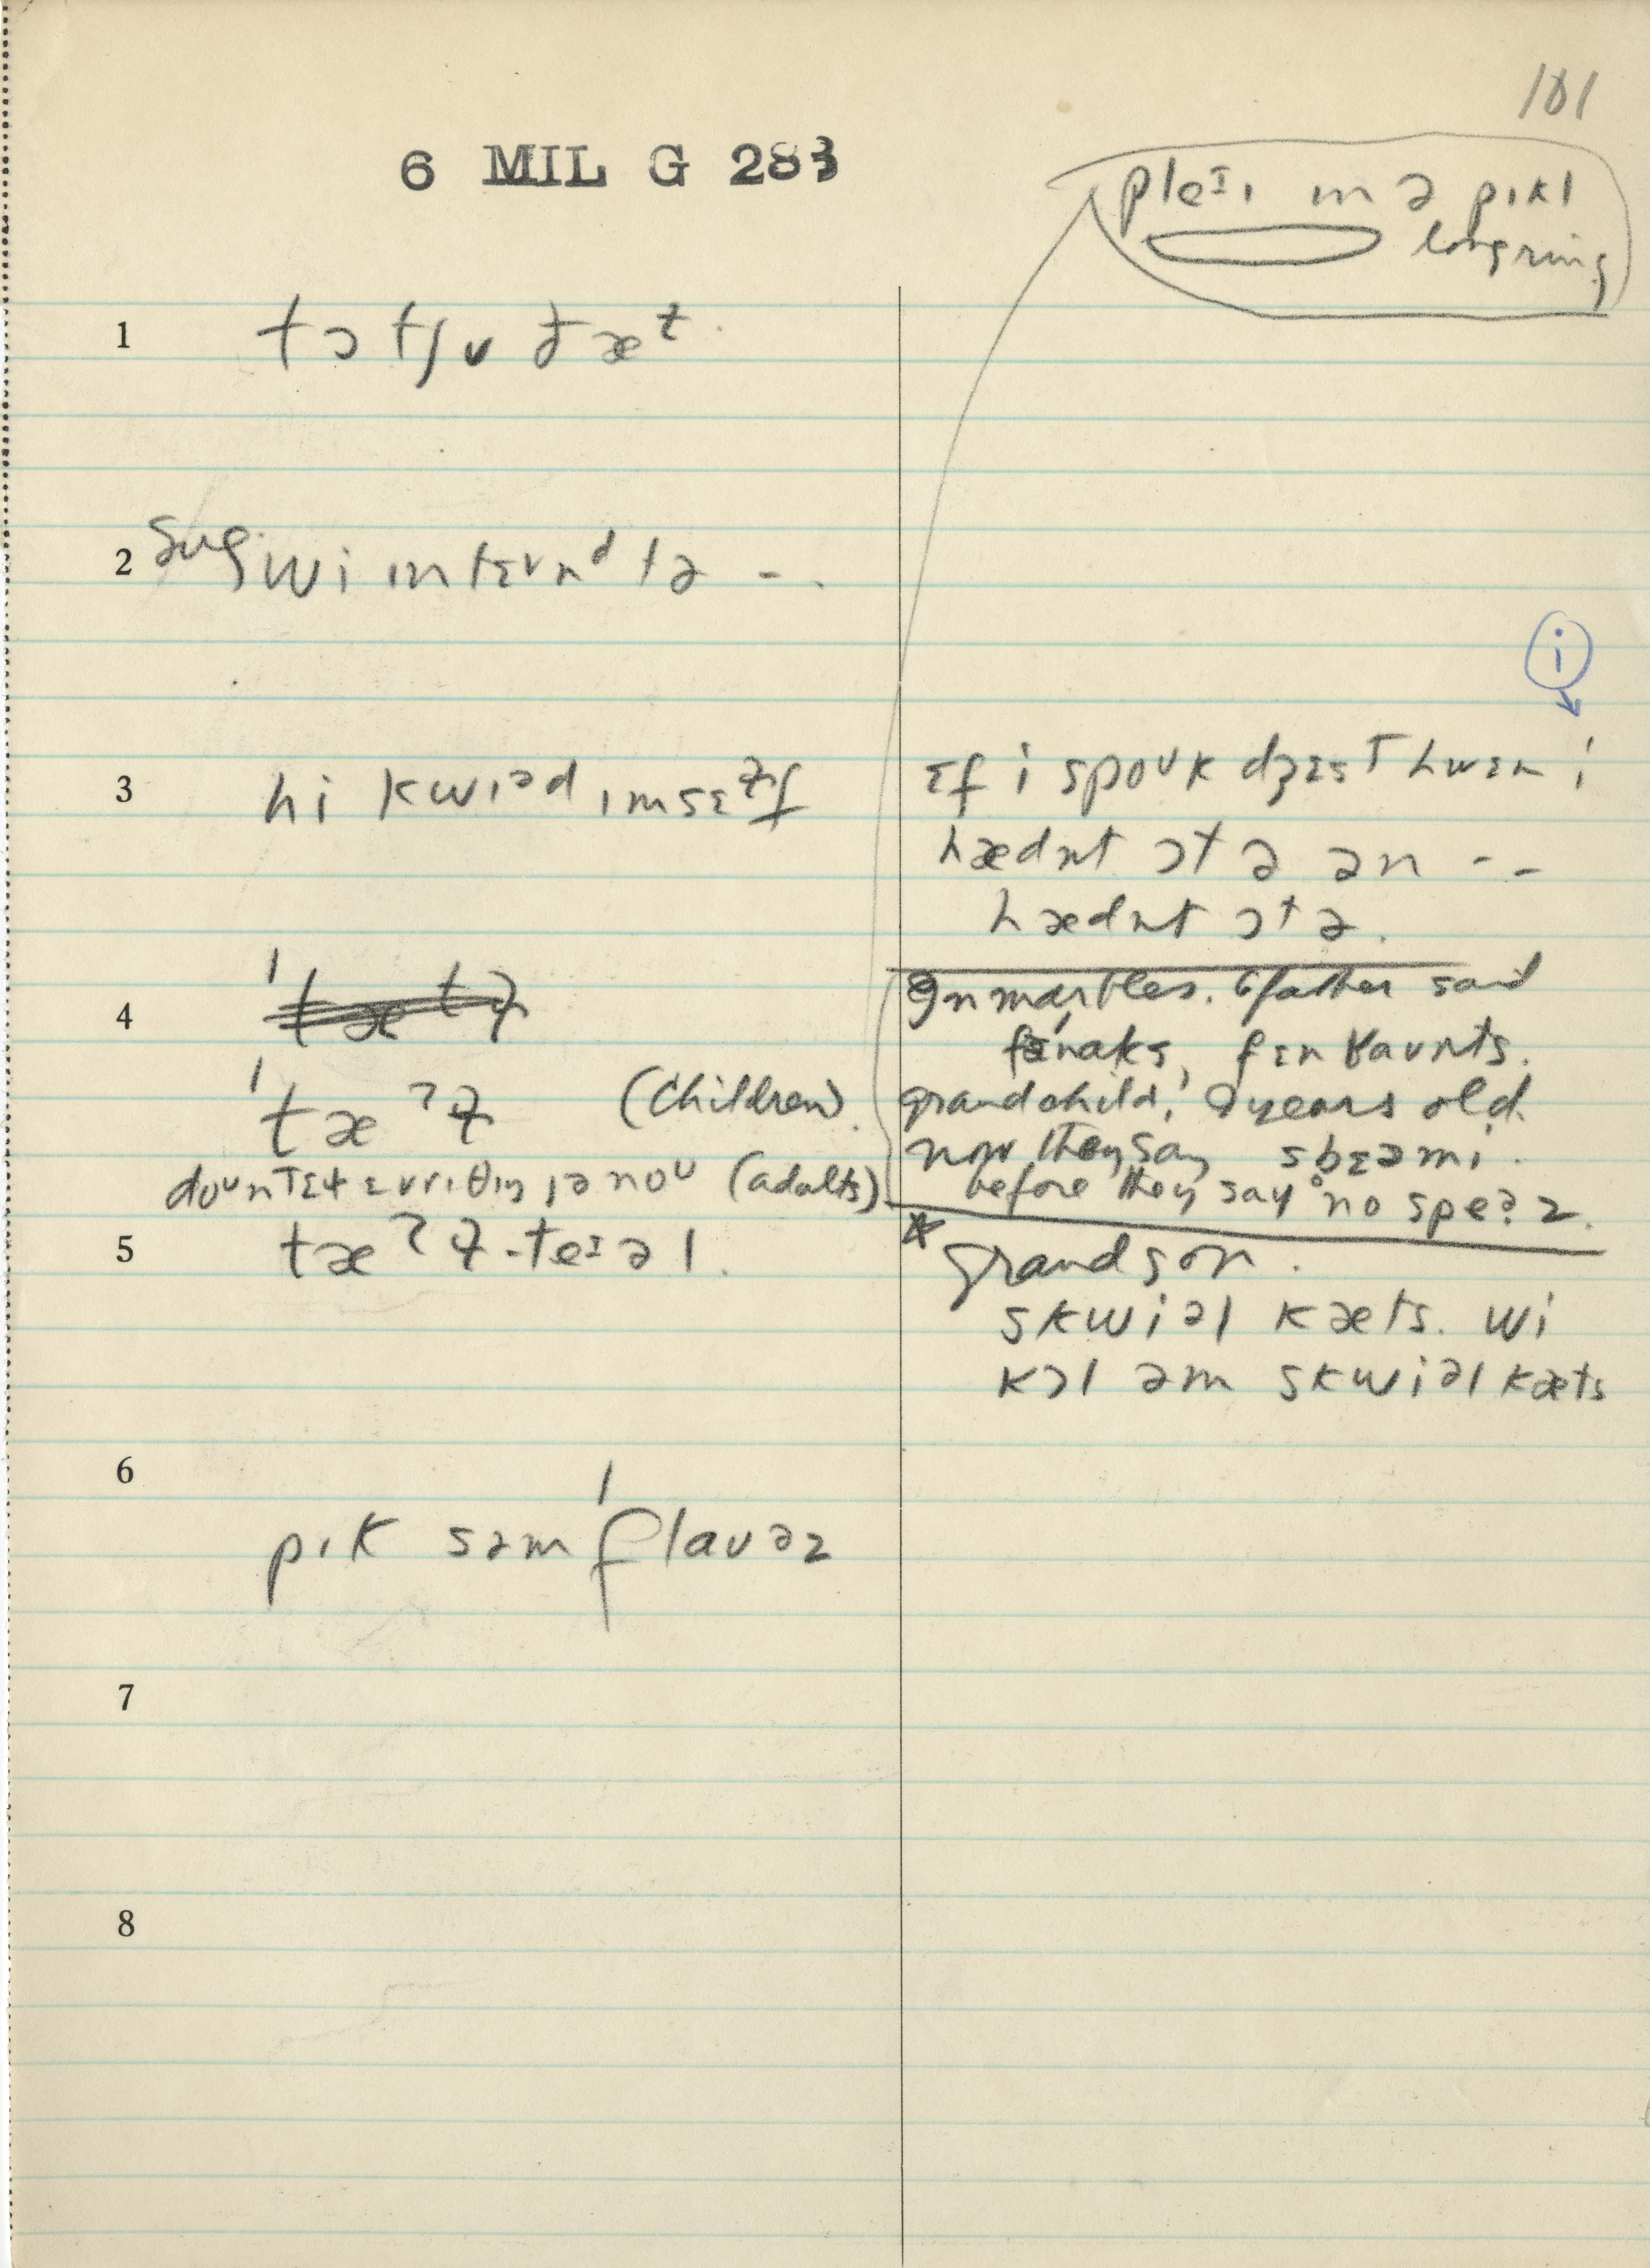 101
6 MIL G 283
pleɪɪ ɪn ə pɪkl
long ring
1 tɔtʃʊ ðæᵗ
2 sug. wi ɪntɛvnᵈ tə - .
i
3 hi kwɪəd ɪmsɛɫf
ɛf i spoᴜk dʒɛst hwɛn i
hædnt ɔtə ən - -
hædnt ɔtə.
4
'tæʔɫ (children).
doᴜn tɛɫ ɛvrɪθɪŋ jə noᴜ (adults)
In marbles. Gfather said
fɛn kaunts.
grandchild, 9 years old.
now they say sbɛəmi.
before they say no speʔz.
5 tæʔɫ-teɪəl.
* grandson.
skwiəl kæts. wi
kɔl əm skwiəl kæts
6
pɪk səm 'flauəz
7
8